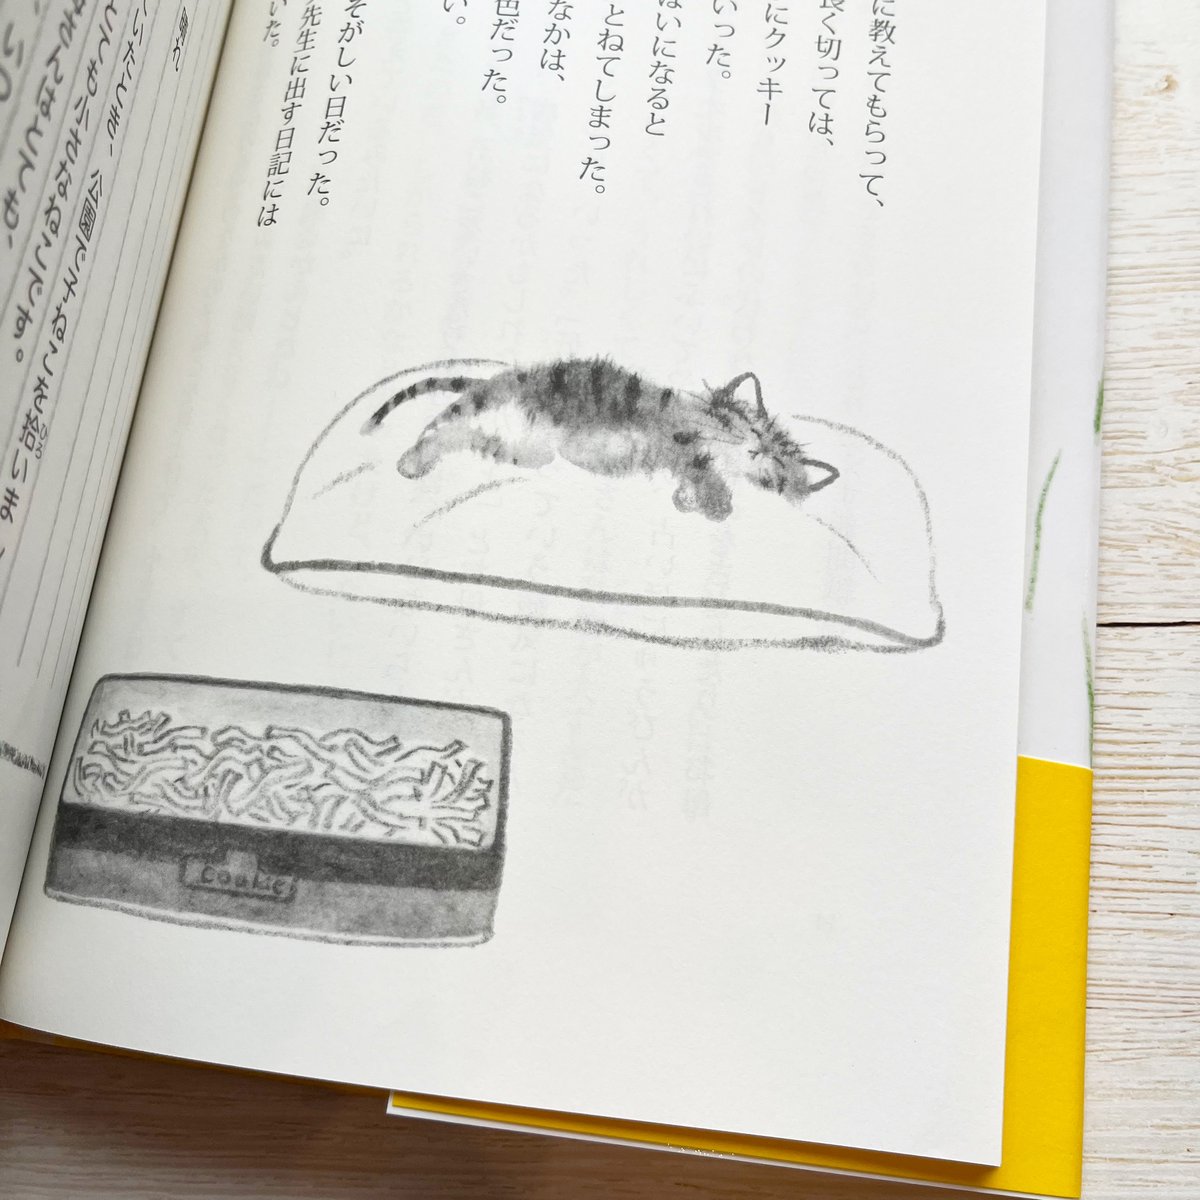 に教えてもらって、
く切っては、
にクッキー
いった。
いになると
とねてしまった。
なかは、
色だった。
い。
そがしい日だった。
先生に出す日記には
いた。
とき、公園で子ねこを拾いま
ひろ
とても小さなねこです。
とても、
cookie